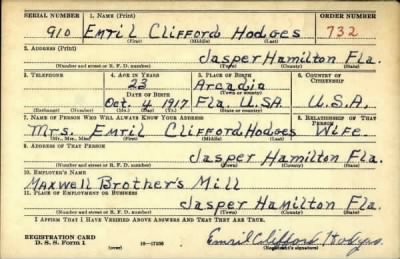 SERIAL NUMBER 1. NAME (Print) ORDER NUMBER
910 Emril Clifford Hodges 732
(First) (Middle) (Last)
2. ADDRESS (Print)
Jasper Hamilton Fla.
(Number and street or R. F. D. number) (Town) (County) (State)
3. TELEPHONE 4. AGE IN YEARS 5. PLACE OF BIRTH 6. COUNTRY OF CITIZENSHIP
23 Arcadia
DATE OF BIRTH (Town or county)
Oct. 4 1917 Fla. U.S.A. U.S.A.
(Exchange) (Number) (Mo.) (Day) (Yr.) (State or country)
7. NAME OF PERSON WHO WILL ALWAYS KNOW YOUR ADDRESS 8. RELATIONSHIP OF THAT PERSON
Mrs. Emril Clifford Hodges Wife
(Mr., Mrs., Miss) (First) (Middle) (Last)
9. ADDRESS OF THAT PERSON
Jasper Hamilton Fla.
(Number and street or R. F. D. number) (Town) (County) (State)
10. EMPLOYER'S NAME
Maxwell Brother's Mill
11. PLACE OF EMPLOYMENT OR BUSINESS
Jasper Hamilton Fla.
(Number and street or R. F. D. number) (Town) (County) (State)
I AFFIRM THAT I HAVE VERIFIED ABOVE ANSWERS AND THAT THEY ARE TRUE.
REGISTRATION CARD
D. S. S. Form 1 (over) Emril Clifford Hodges
(Registrant's signature)